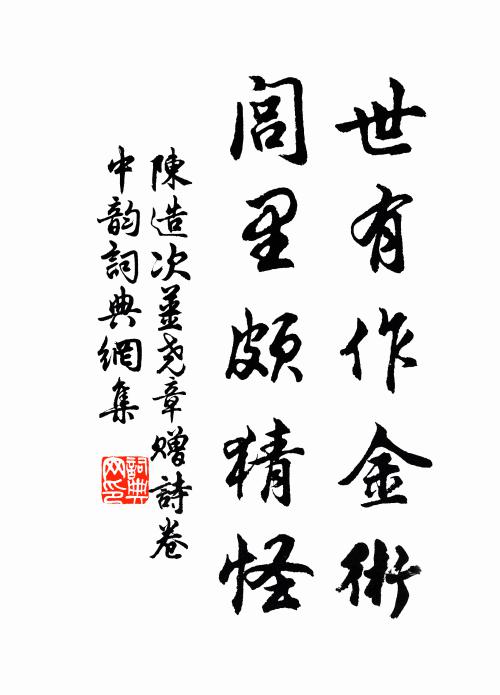 世有作金術
閭里頗猜怪
陳造次姜堯章贈詩卷
中韵詞典網集
詞典網印